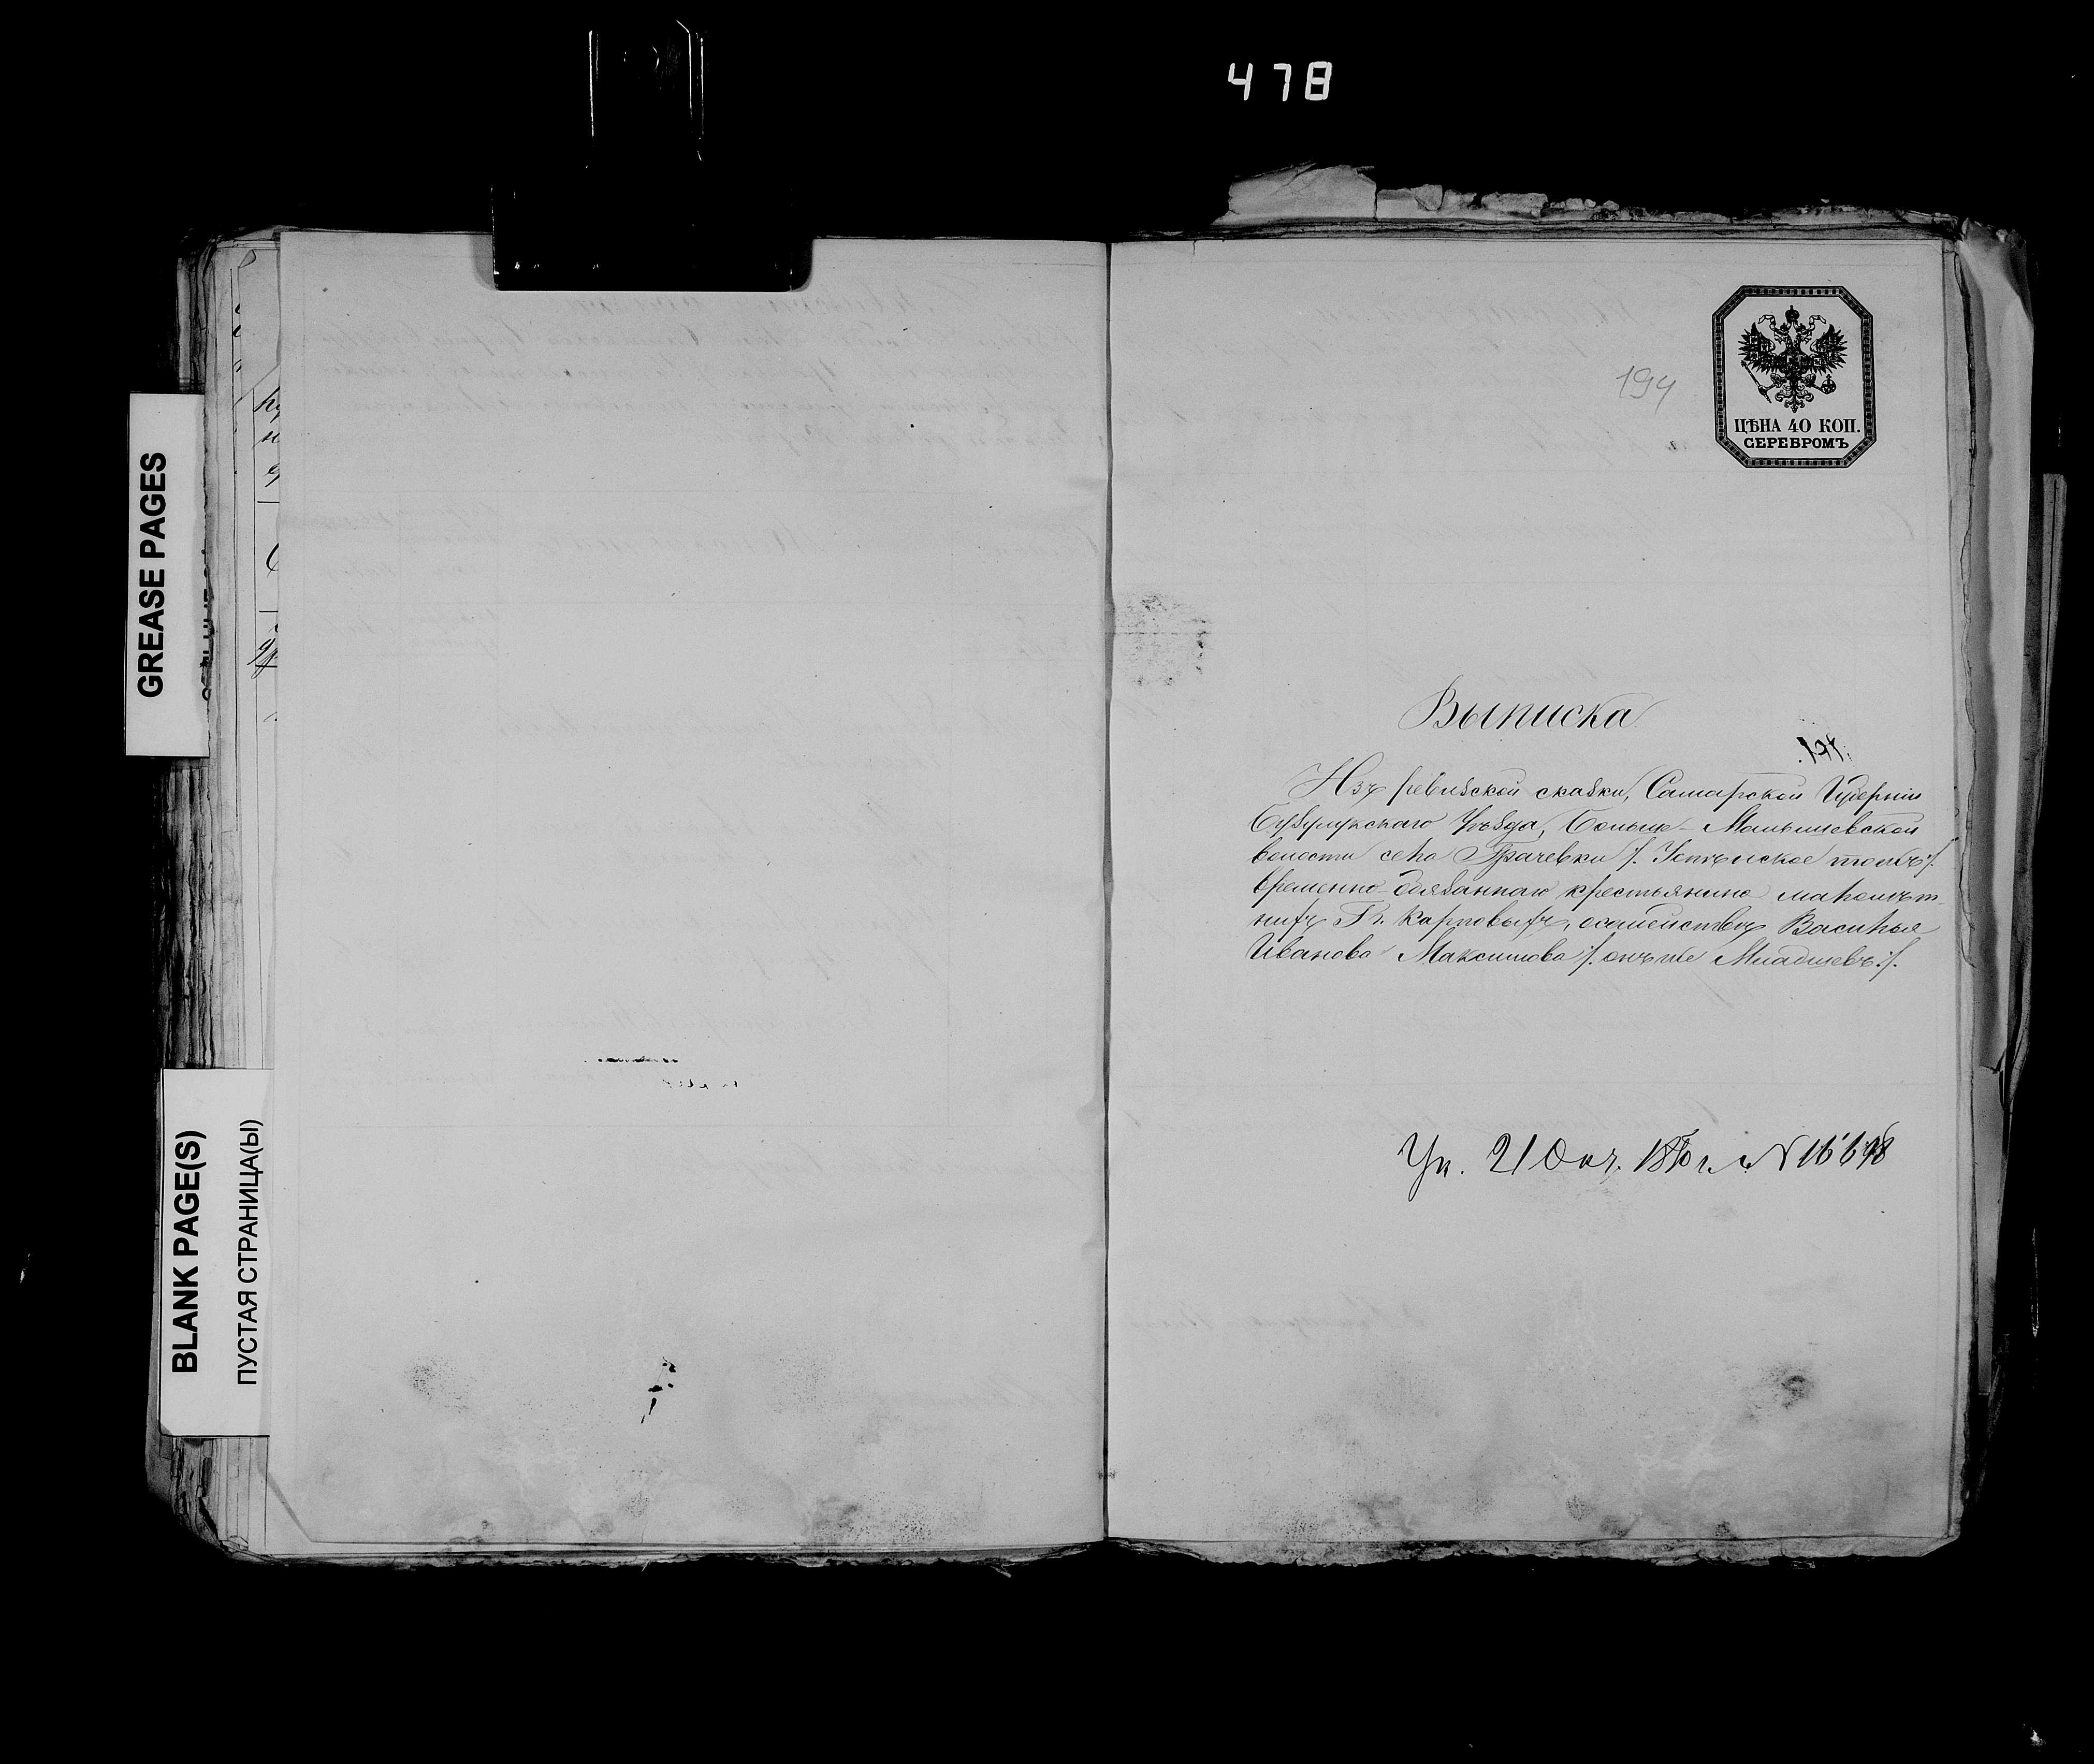 478
GREASE PAGES
BLANK PAGE(S)
ПУСТАЯ СТРАНИЦА(Ы)
194
ЦѢНА 40 КОП.
СЕРЕБРОМЪ
Выписка
Изъ ревизской сказки, Самарской Губерніи
Бузулукскаго Уѣзда, Больше-Малышевской
волости села Грачевки /: тожъ:/
временно-обязаннаго крестьянина малолѣт-
нихъ Гг. Карповыхъ, осемействѣ Василья
Иванова Максимова /: онъ же Младшевъ:/
Ук. 21 Окт. 1870 г. № 16698